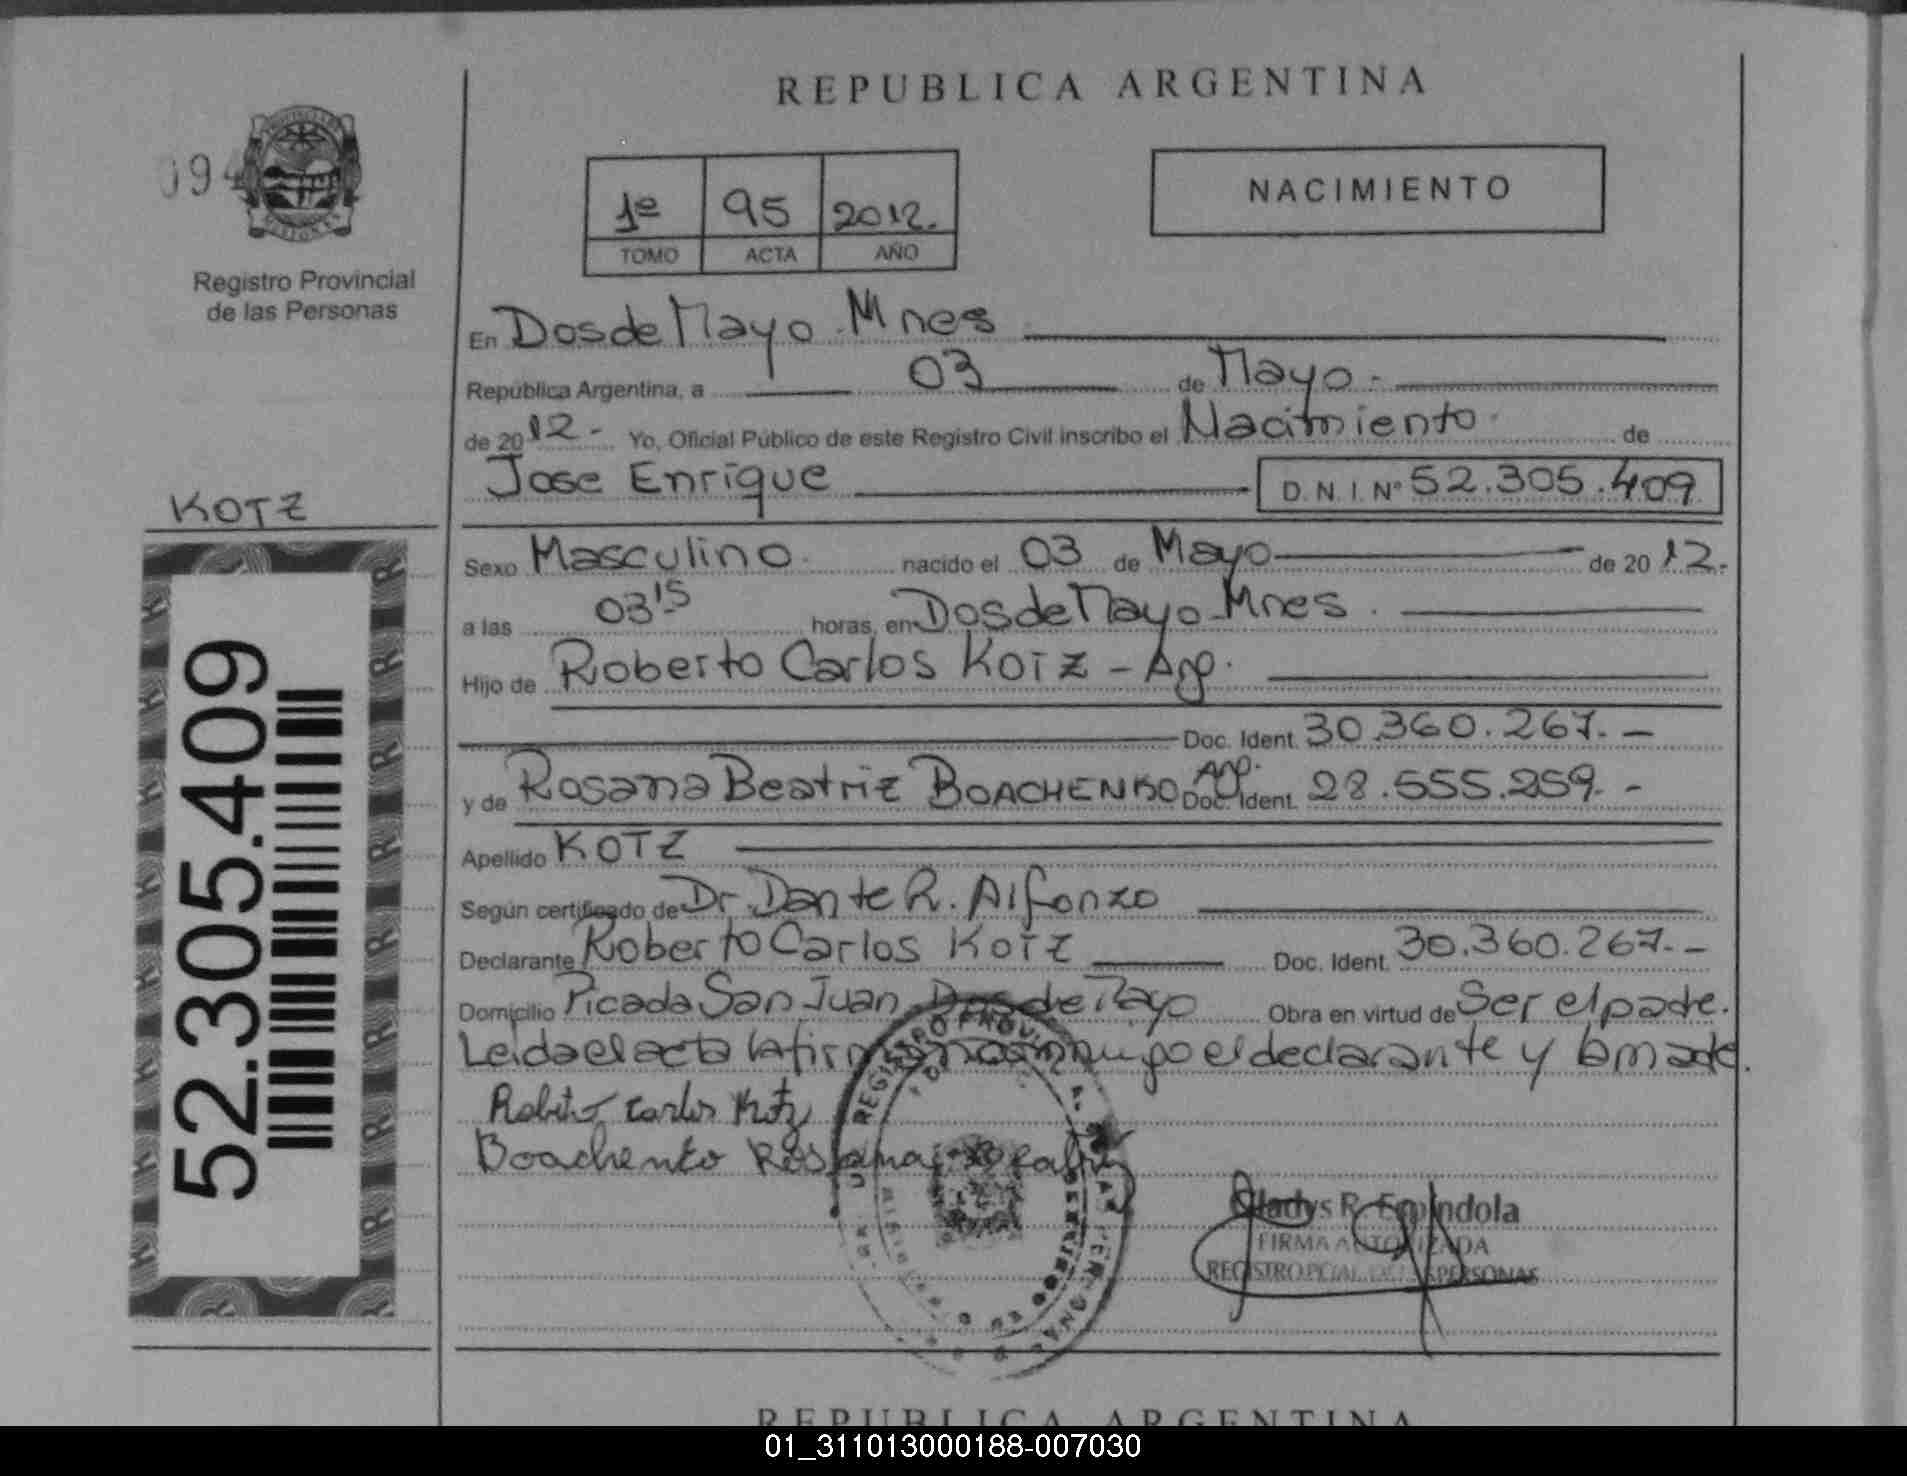 REPUBLICA ARGENTINA
094
Registro Provincial
de las Personas
1º 95 2012.
TOMO ACTA AÑO
NACIMIENTO
En Dos de Mayo Mnes
República Argentina, a 03 de Mayo.-
de 2012.- Yo, Oficial Público de este Registro Civil inscribo el Nacimiento. de
Jose Enrique D. N. I. Nº 52.305.409
KOTZ
Sexo Masculino. nacido el 03 de Mayo de 2012.-
a las 03'5 horas, en Dos de Mayo Mnes.
Hijo de Roberto Carlos KOTZ - Arg.
Doc. Ident. 30.360.267.-
y de Rosana Beatriz BOACHENKO Arg. Doc. Ident. 28.555.259.-
Apellido KOTZ
Según certificado de Dr. Dante R. Alfonzo
Declarante Roberto Carlos KOTZ Doc. Ident. 30.360.267.-
Domicilio Picada San Juan Dos de Mayo Obra en virtud de Ser el padre.
Leida el acta la firman conmigo el declarante y la madre.
Roberto Carlos Kotz
Boachenko Rosana Beatriz
52.305.409
Gladys R. Espindola
FIRMA AUTORIZADA
REGISTRO PCIAL DE LAS PERSONAS
REPUBLICA ARGENTINA
01_311013000188-007030